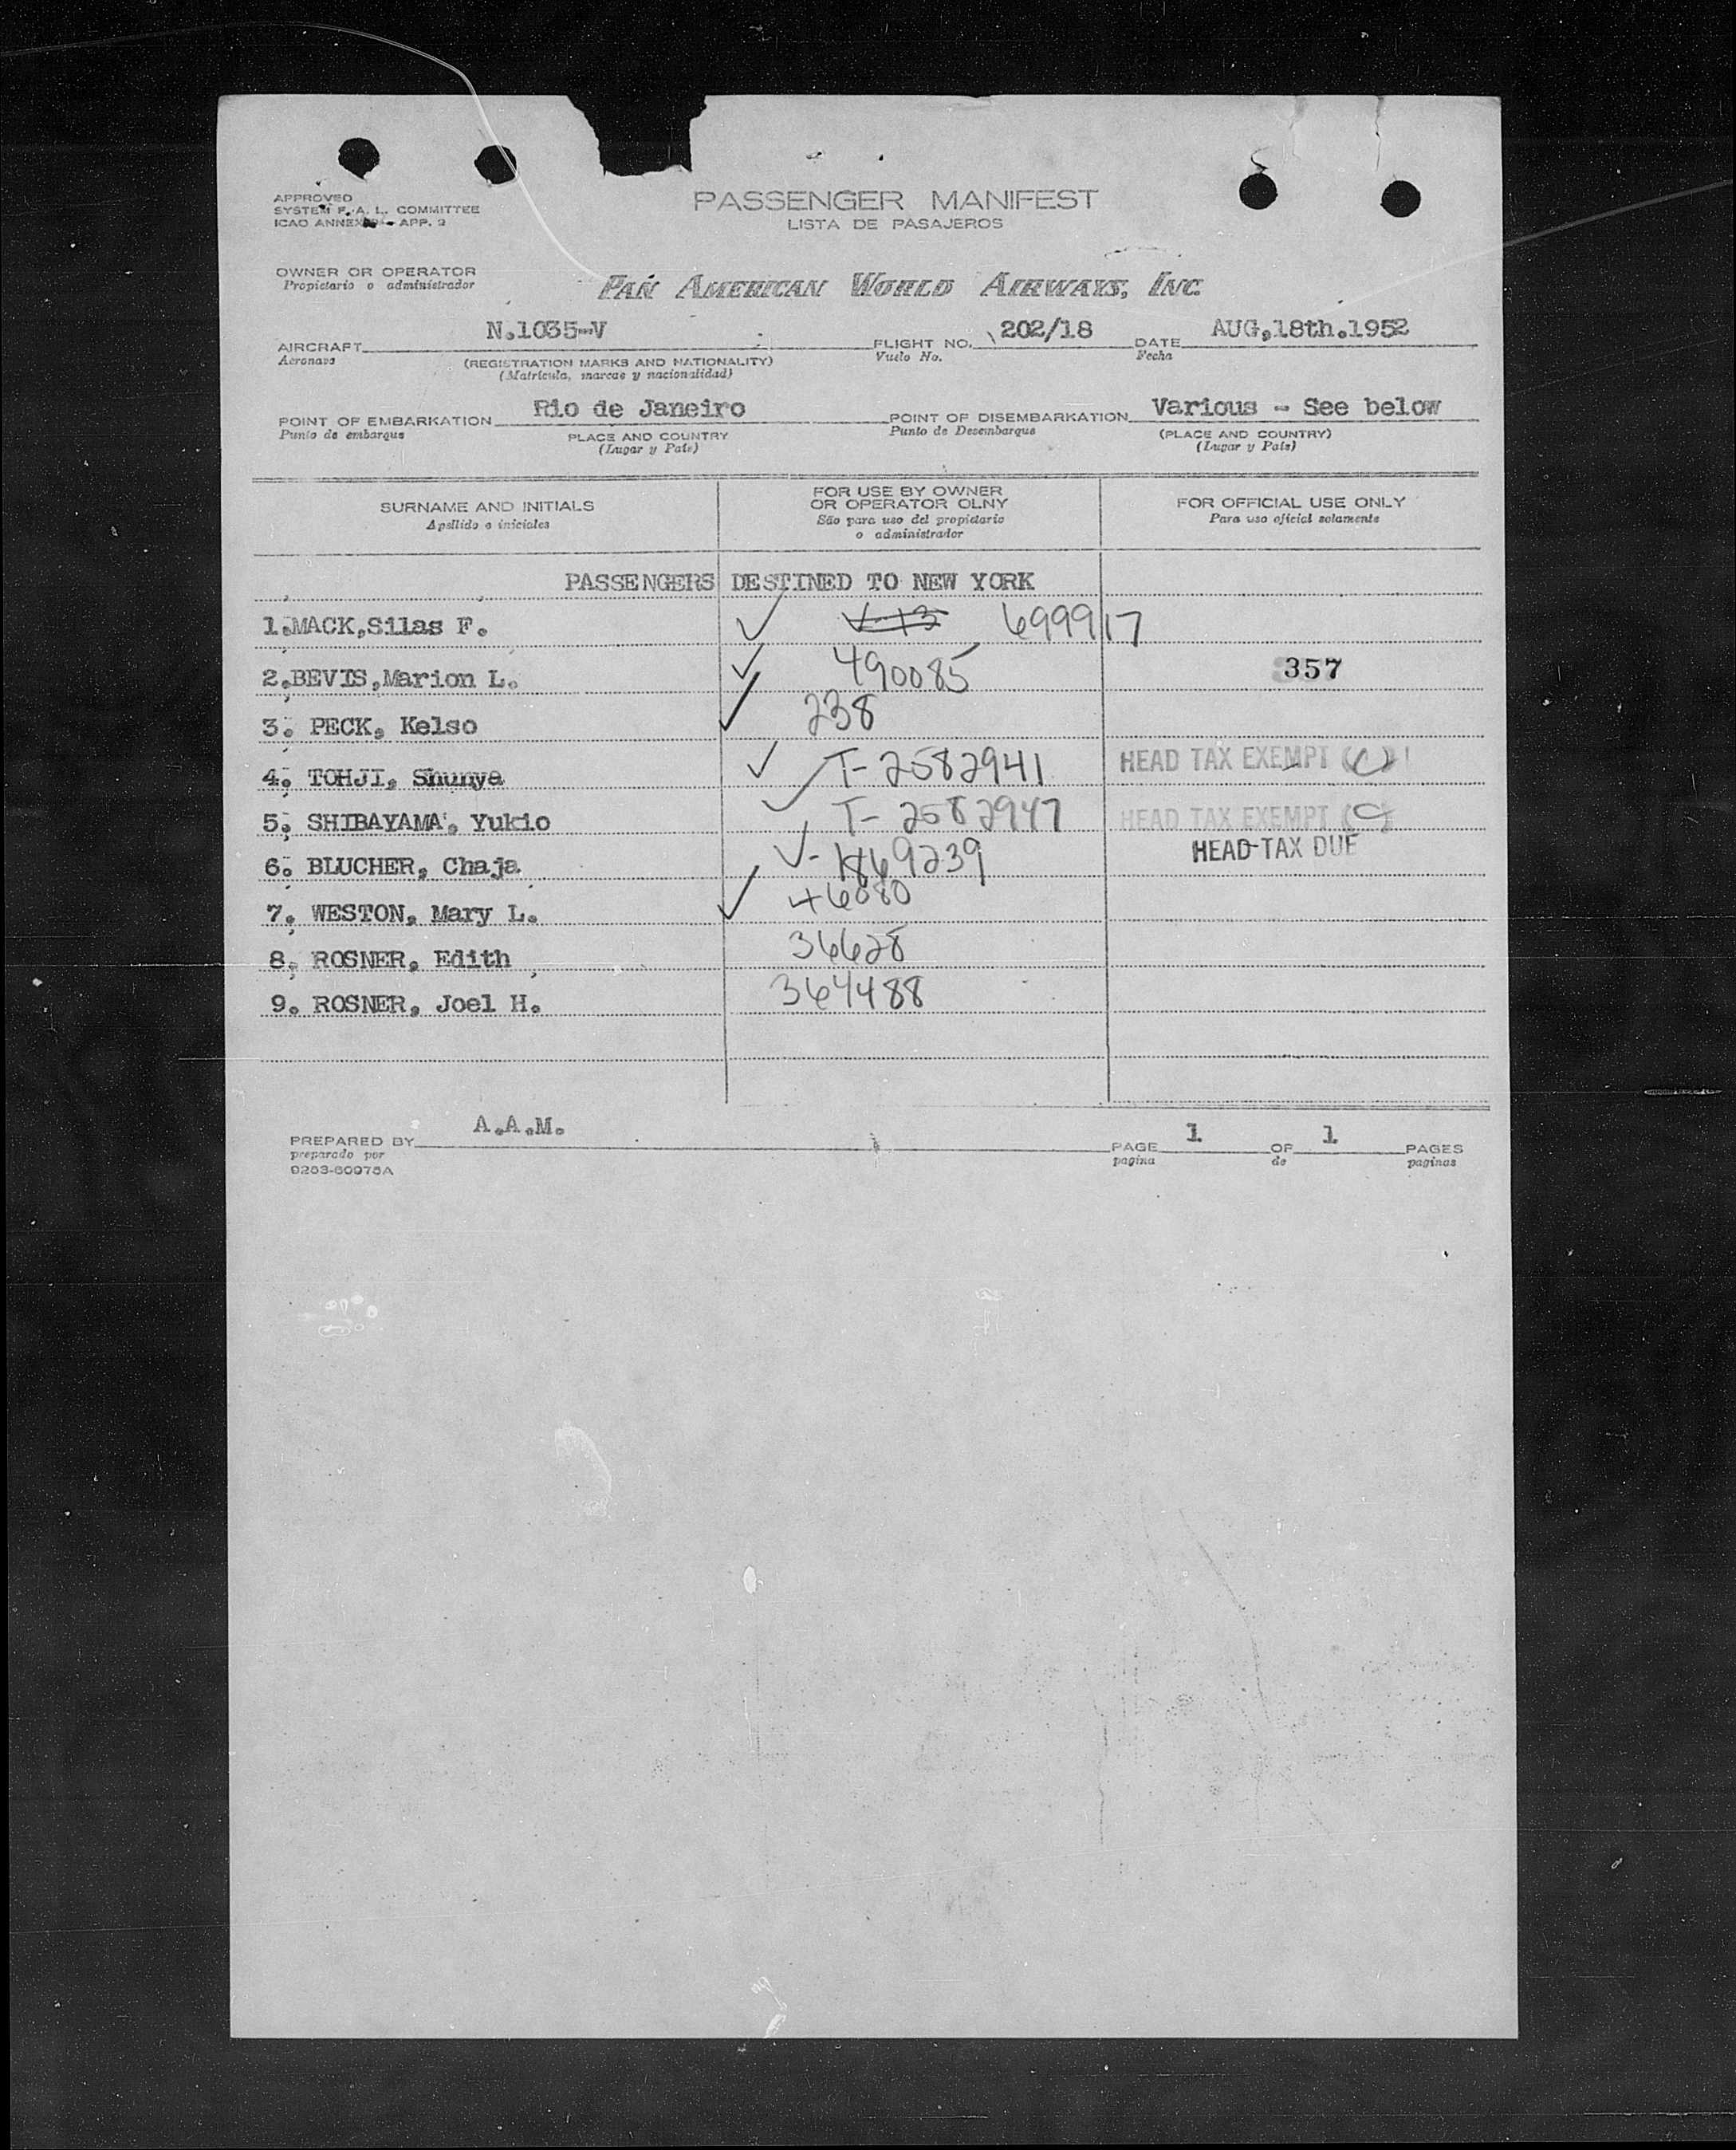 APPROVED
SYSTEM F. A. L. COMMITTEE
ICAO ANNEX - APP. 3
PASSENGER MANIFEST
LISTA DE PASAJEROS
OWNER OR OPERATOR
Propietario o administrador
PAN AMERICAN WORLD AIRWAYS, INC
AIRCRAFT N.1035-V FLIGHT NO. 202/18 DATE AUG,18th.1952
Aeronave (REGISTRATION MARKS AND NATIONALITY) Vuelo No. Fecha
(Matricula, marcas y nacionalidad)
POINT OF EMBARKATION Rio de Janeiro POINT OF DISEMBARKATION Various - See below
Punto de embarque PLACE AND COUNTRY Punto de Desembarque (PLACE AND COUNTRY)
(Lugar y Pais) (Lugar y Pais)
SURNAME AND INITIALS
Apellido e iniciales
FOR USE BY OWNER
OR OPERATOR OLNY
São para uso del propietario
o administrador
FOR OFFICIAL USE ONLY
Para uso oficial solamente
PASSENGERS DESTINED TO NEW YORK
1.MACK,Silas F. ✓ 699917
2.BEVIS,Marion L. ✓ 490085 357
3. PECK, Kelso ✓ 238
4. TOHJI, Shunya ✓ T-2582941 HEAD TAX EXEMPT (C)
5. SHIBAYAMA, Yukio ✓ T-2582947 HEAD TAX EXEMPT (C)
6. BLUCHER, Chaja V-1869239 HEAD-TAX DUE
7. WESTON, Mary L. ✓ 46080
8. ROSNER, Edith 36628
9. ROSNER, Joel H. 364488
PREPARED BY A.A.M. PAGE 1 OF 1 PAGES
preparado por pagina de paginas
0253-60975A